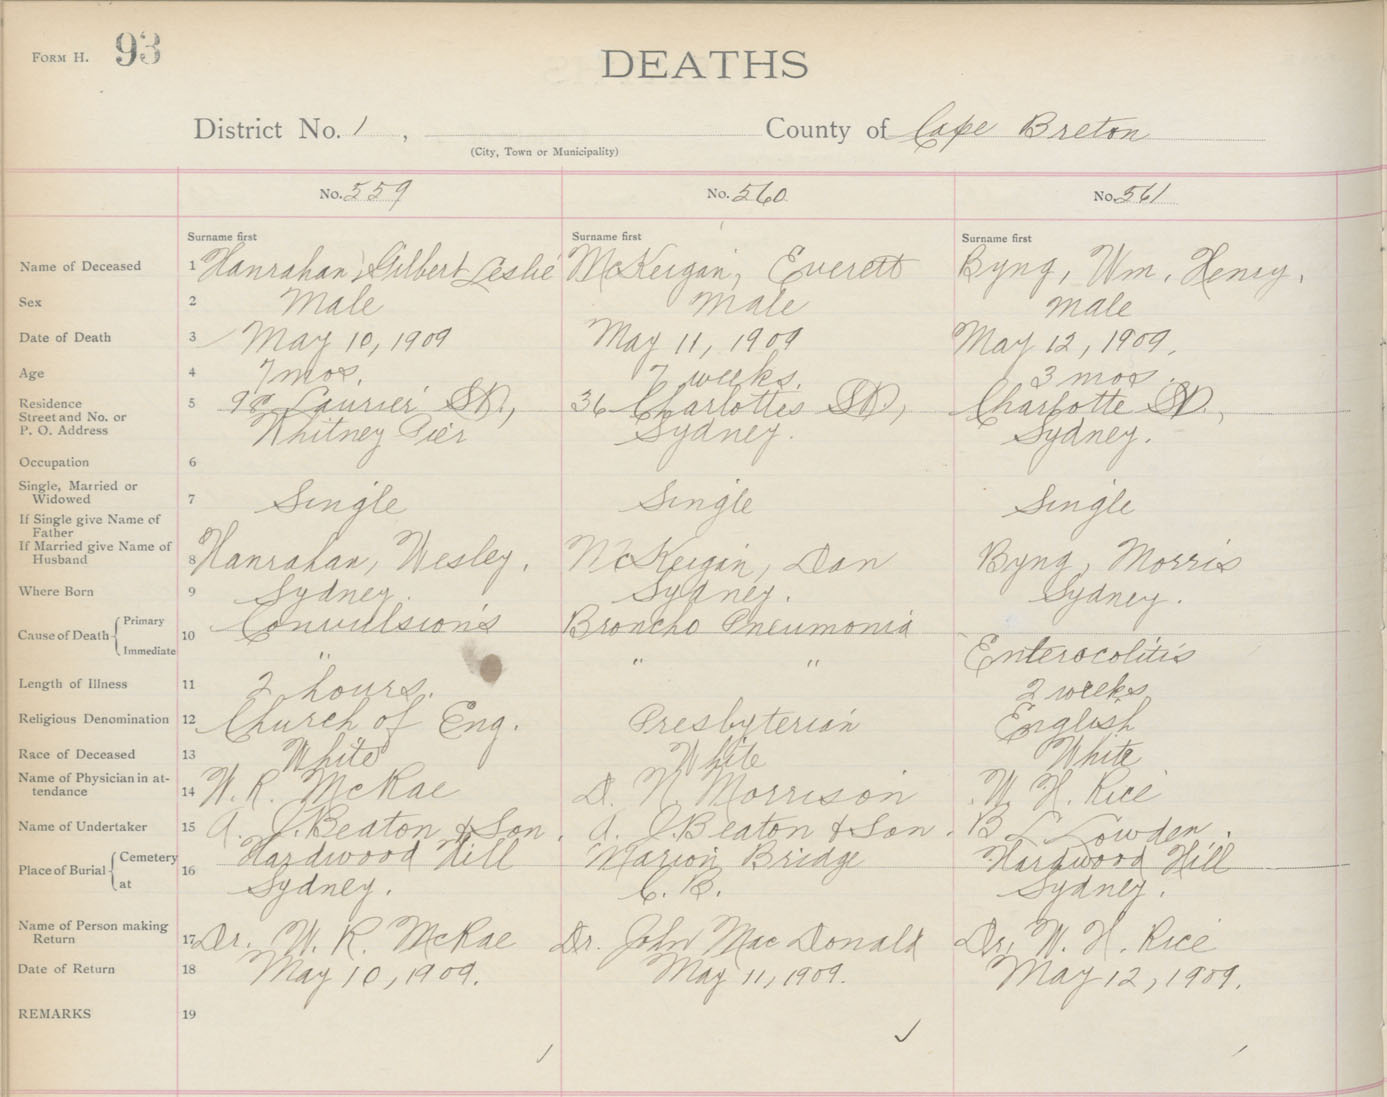 FORM H. 93
DEATHS
District No. 1, County of Cape Breton
(City, Town or Municipality)
No. 559 No. 560 No. 561
Surname first Surname first Surname first
Name of Deceased 1 Hanrahan, Gilbert Leslie McKeigan, Everett Byng, Wm. Henry.
Sex 2 Male Male Male
Date of Death 3 May 10, 1909 May 11, 1909 May 12, 1909.
Age 4 7 mos. 7 weeks. 3 mos.
Residence 5 Laurier St., 36 Charlotte's St., Charlotte St.,
Street and No. or
P. O. Address Whitney Pier Sydney. Sydney.
Occupation 6
Single, Married or
Widowed 7 Single Single Single
If Single give Name of
Father
If Married give Name of
Husband 8 Hanrahan, Wesley. McKeigan, Dan Byng, Morris
Where Born 9 Sydney. Sydney. Sydney.
Cause of Death Primary 10 Convulsions Broncho Pneumonia
Immediate " " " Enterocolitis
Length of Illness 11 2 hours. 2 weeks
Religious Denomination 12 Church of Eng. Presbyterian English
Race of Deceased 13 White White White
Name of Physician in at-
tendance 14 W. R. McRae D. N. Morrison W. H. Rice
Name of Undertaker 15 A. J. Beaton & Son. A. J. Beaton & Son. B L Lowden.
Place of Burial Cemetery 16 Hardwood Hill Marion Bridge Hardwood Hill
at Sydney. C. B. Sydney.
Name of Person making
Return 17 Dr. W. R. McRae Dr. John MacDonald Dr. W. H. Rice
Date of Return 18 May 10, 1909. May 11, 1909. May 12, 1909.
REMARKS 19